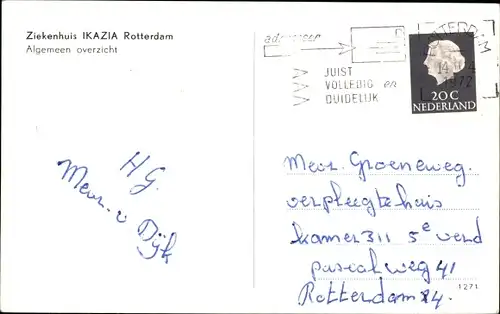 Ziekenhuis IKAZIA Rotterdam
Algemeen overzicht
adresseer
JUIST
VOLLEDIG en
DUIDELIJK
ROTTERDAM
1972
20 C
NEDERLAND
H G.
Mevr. v Dijk
Mevr. Groeneweg.
verpleegtehuis
kamer 311 5e verd
pascalweg 41
Rotterdam 24.
1271